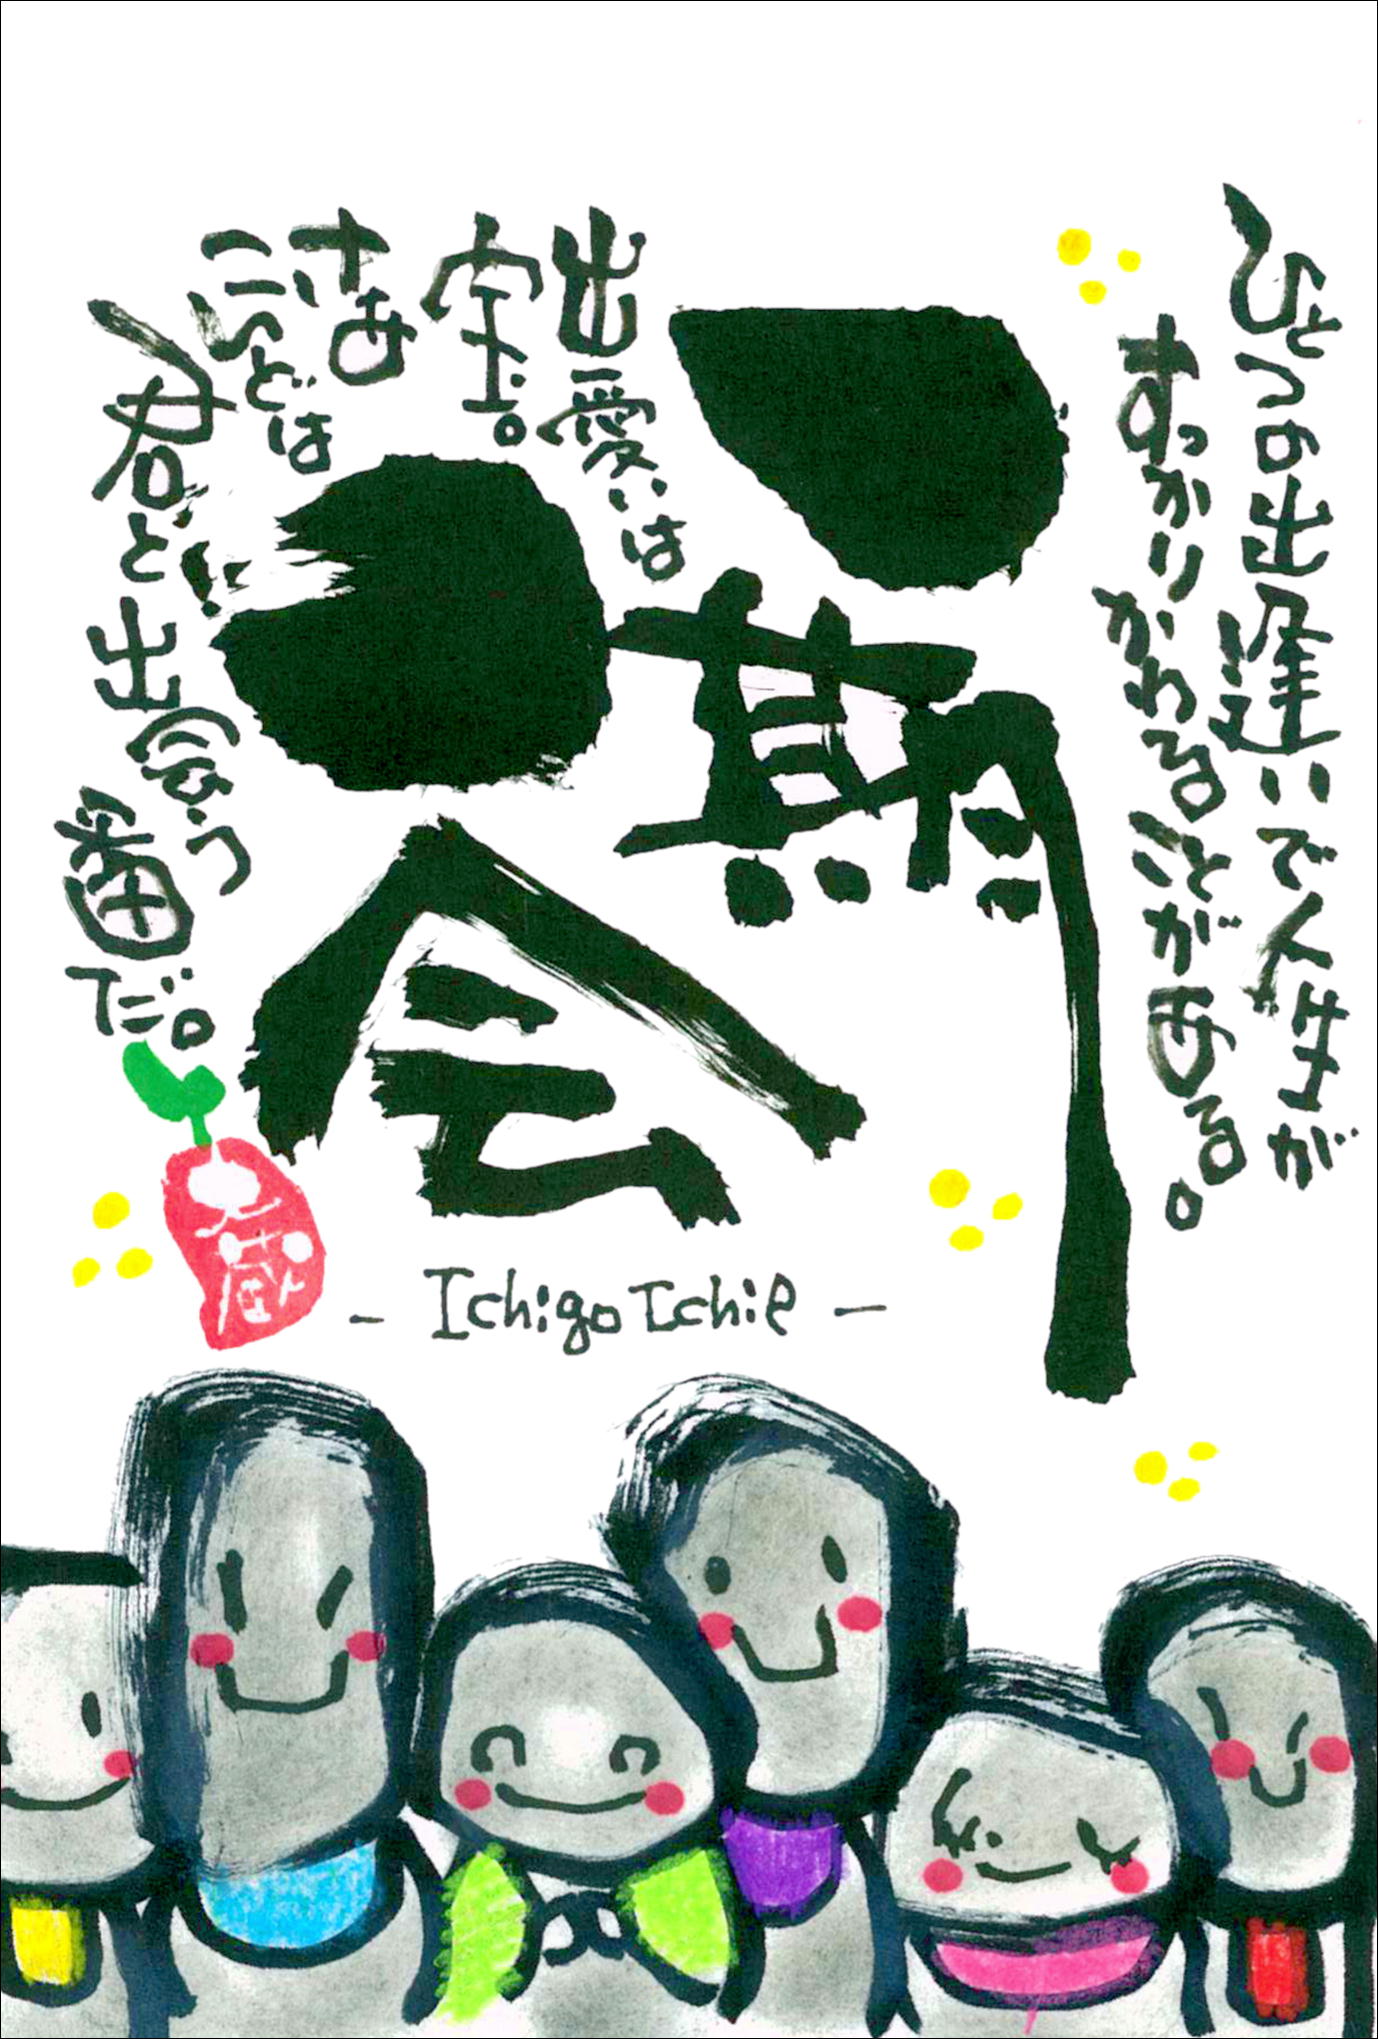 ひとつの出逢いで人生が
すっかりかわることがある。
一期
一会
出愛いは
宝。
さあ
こんどは
君と出会う
番だ。!!
- Ichigo Ichie -